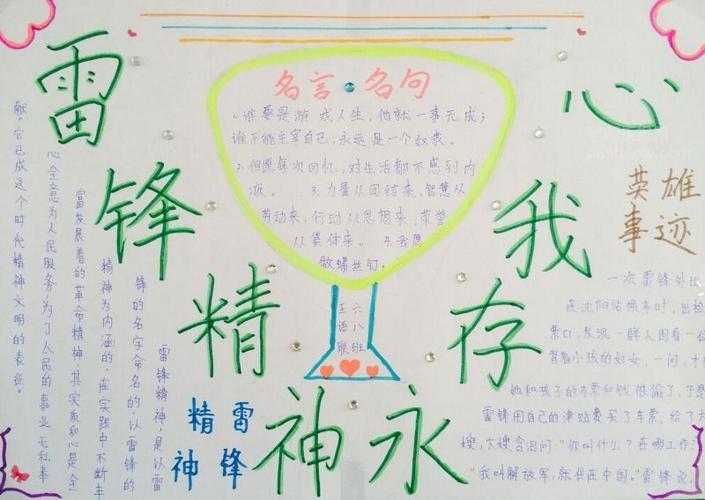 雷锋精神永存我心
名言名句
1.谁要是游戏人生，他就一事无成；
谁不能主宰自己，永远是一个奴隶。
2.但愿每次回忆，对生活都不感到内
疚。 3.力量从团结来，智慧从
劳动来，行动从思想来，荣誉
从集体来。 4.我愿
做螺丝钉。
六八班
王语联
雷锋
精神
雷锋精神，是以雷
锋的名字命名的，以雷锋的
精神为内涵的，在实践中不断丰
富发展着的革命精神，其实质和核心是全
心全意为人民服务，为了人民的事业无私奉
献。它已成这个时代精神文明的表征。
英雄
事迹
一次雷锋外出
在沈阳站换车时，出检
票口，发现一群人围看一个
背着小孩的妇女，一问，才
她和孩子的车票和钱被偷了，于是
雷锋用自己的津贴费买了车票，给了大
嫂，大嫂含泪问：“你叫什么？在哪工作？
“我叫解放军，就住在中国。”雷锋说。